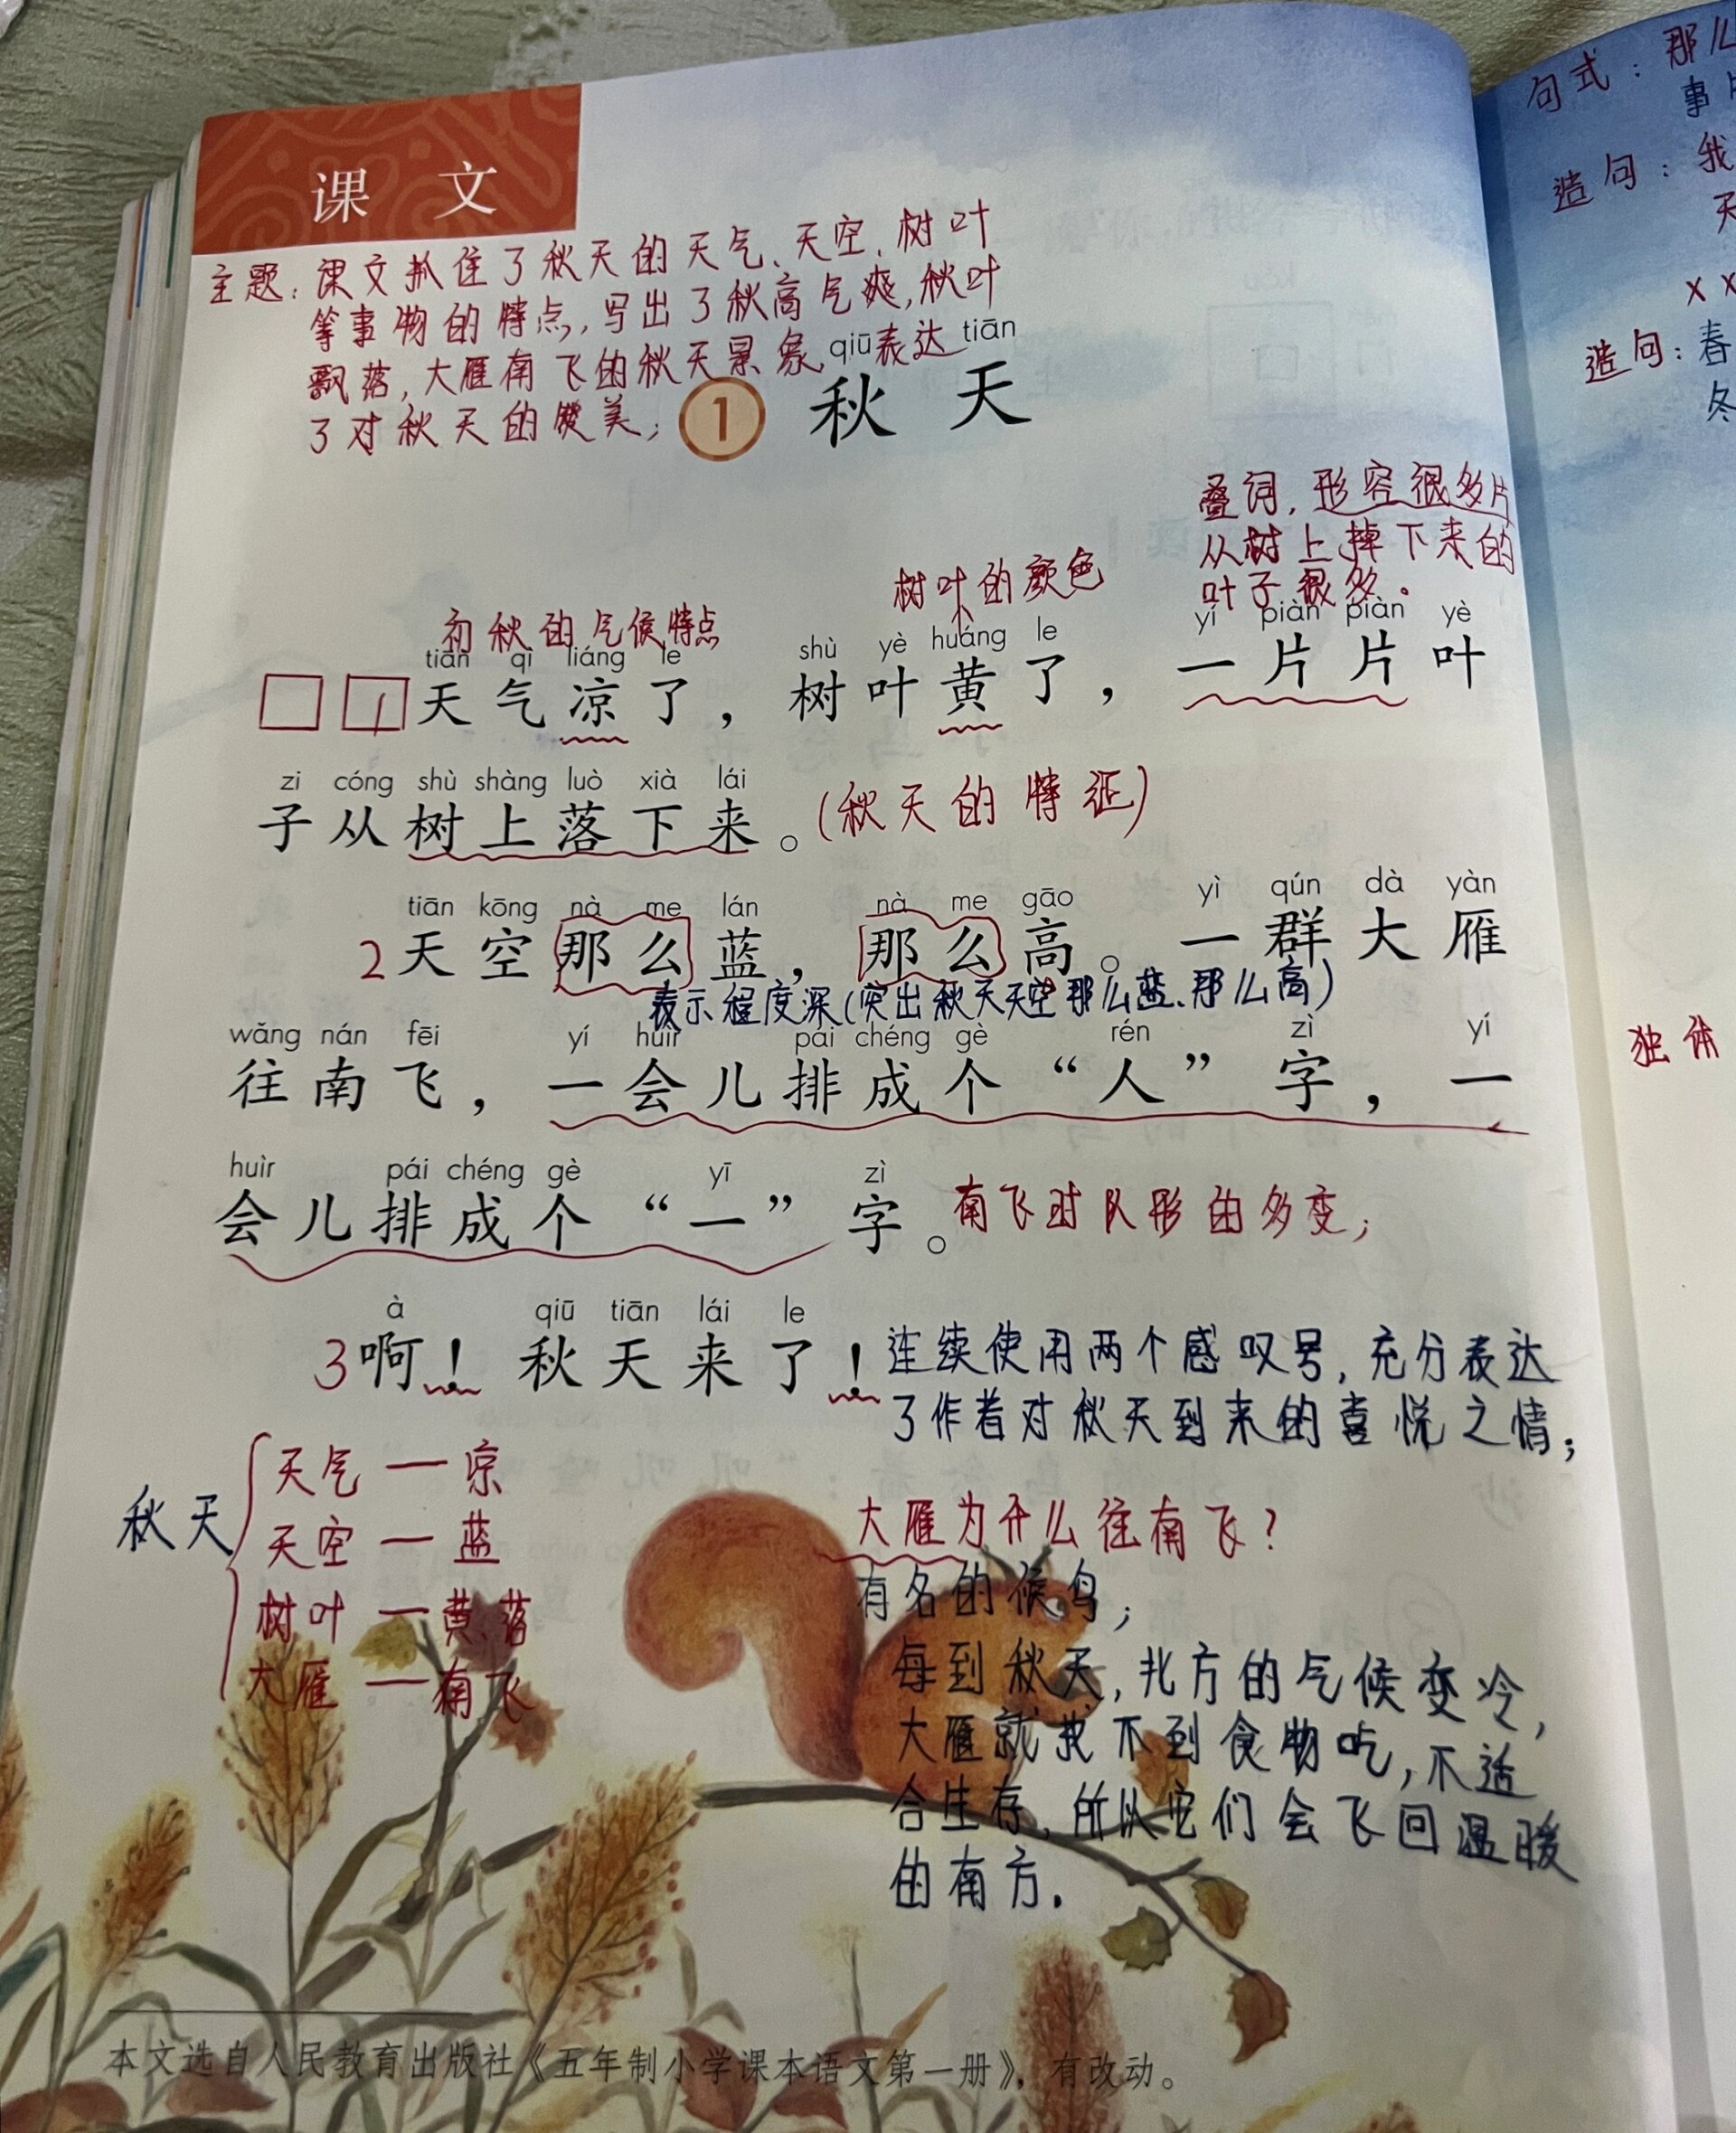 课 文
主题：课文抓住了秋天的天气、天空、树叶
等事物的特点，写出了秋高气爽，秋叶
飘落，大雁南飞的秋天景象，表达
了对秋天的赞美；
qiū tiān
1 秋 天
叠词，形容很多片
从树上掉下来的
叶子很多。
树叶的颜色
初秋的气候特点
tiān qì liáng le shù yè huáng le yí piàn piàn yè
1天气凉了，树叶黄了，一片片叶
zi cóng shù shàng luò xià lái
子从树上落下来。(秋天的特征)
tiān kōng nà me lán nà me gāo yì qún dà yàn
2天空那么蓝，那么高。一群大雁
表示程度深(突出秋天天空那么蓝、那么高)
wǎng nán fēi yí huìr pái chéng gè rén zì yí
往南飞，一会儿排成个“人”字，一
huìr pái chéng gè yī zì
会儿排成个“一”字。南飞时队形的多变；
à qiū tiān lái le
3啊！秋天来了！连续使用两个感叹号，充分表达
了作者对秋天到来的喜悦之情；
秋天
天气 — 凉
天空 — 蓝
树叶 — 黄、落
大雁 — 南飞
大雁为什么往南飞？
有名的候鸟；
每到秋天，北方的气候变冷，
大雁就找不到食物吃，不适
合生存，所以它们会飞回温暖
的南方.
本文选自人民教育出版社《五年制小学课本语文第一册》，有改动。
句式：那么
事
造句：我
天
x x
造句：春
冬
独体